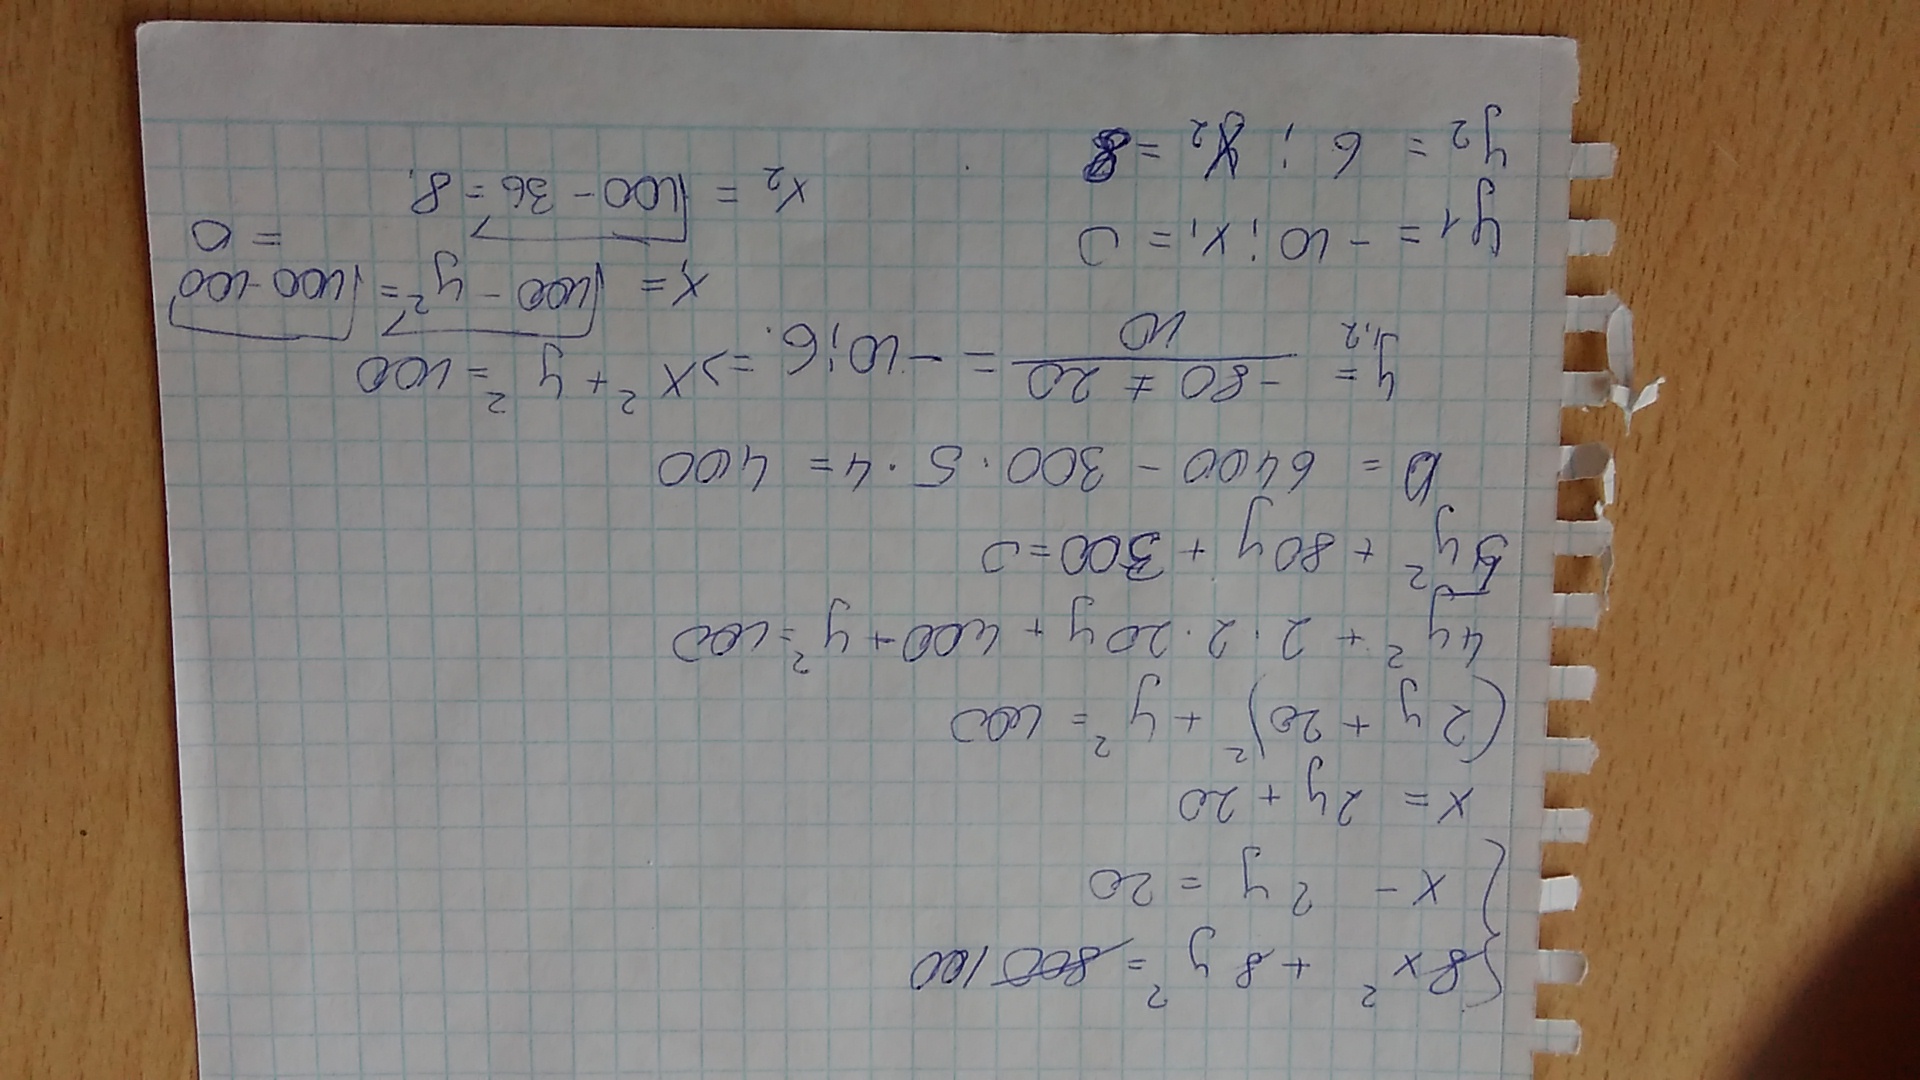 8x² + 8y² = 800 100
x - 2y = 20
x = 2y + 20
(2y + 20)² + y² = 100
4y² + 2 · 2 · 20y + 400 + y² = 100
5y² + 80y + 300 = 0
D = 6400 - 300 · 5 · 4 = 400
y₁,₂ = (-80 ± 20)/10 = -10; 6. => x² + y² = 100
x₁ = √(100 - y²) = √(100-100) = 0
y₁ = -10; x₁ = 0
x₂ = √(100 - 36) = 8.
y₂ = 6; x₂ = 8